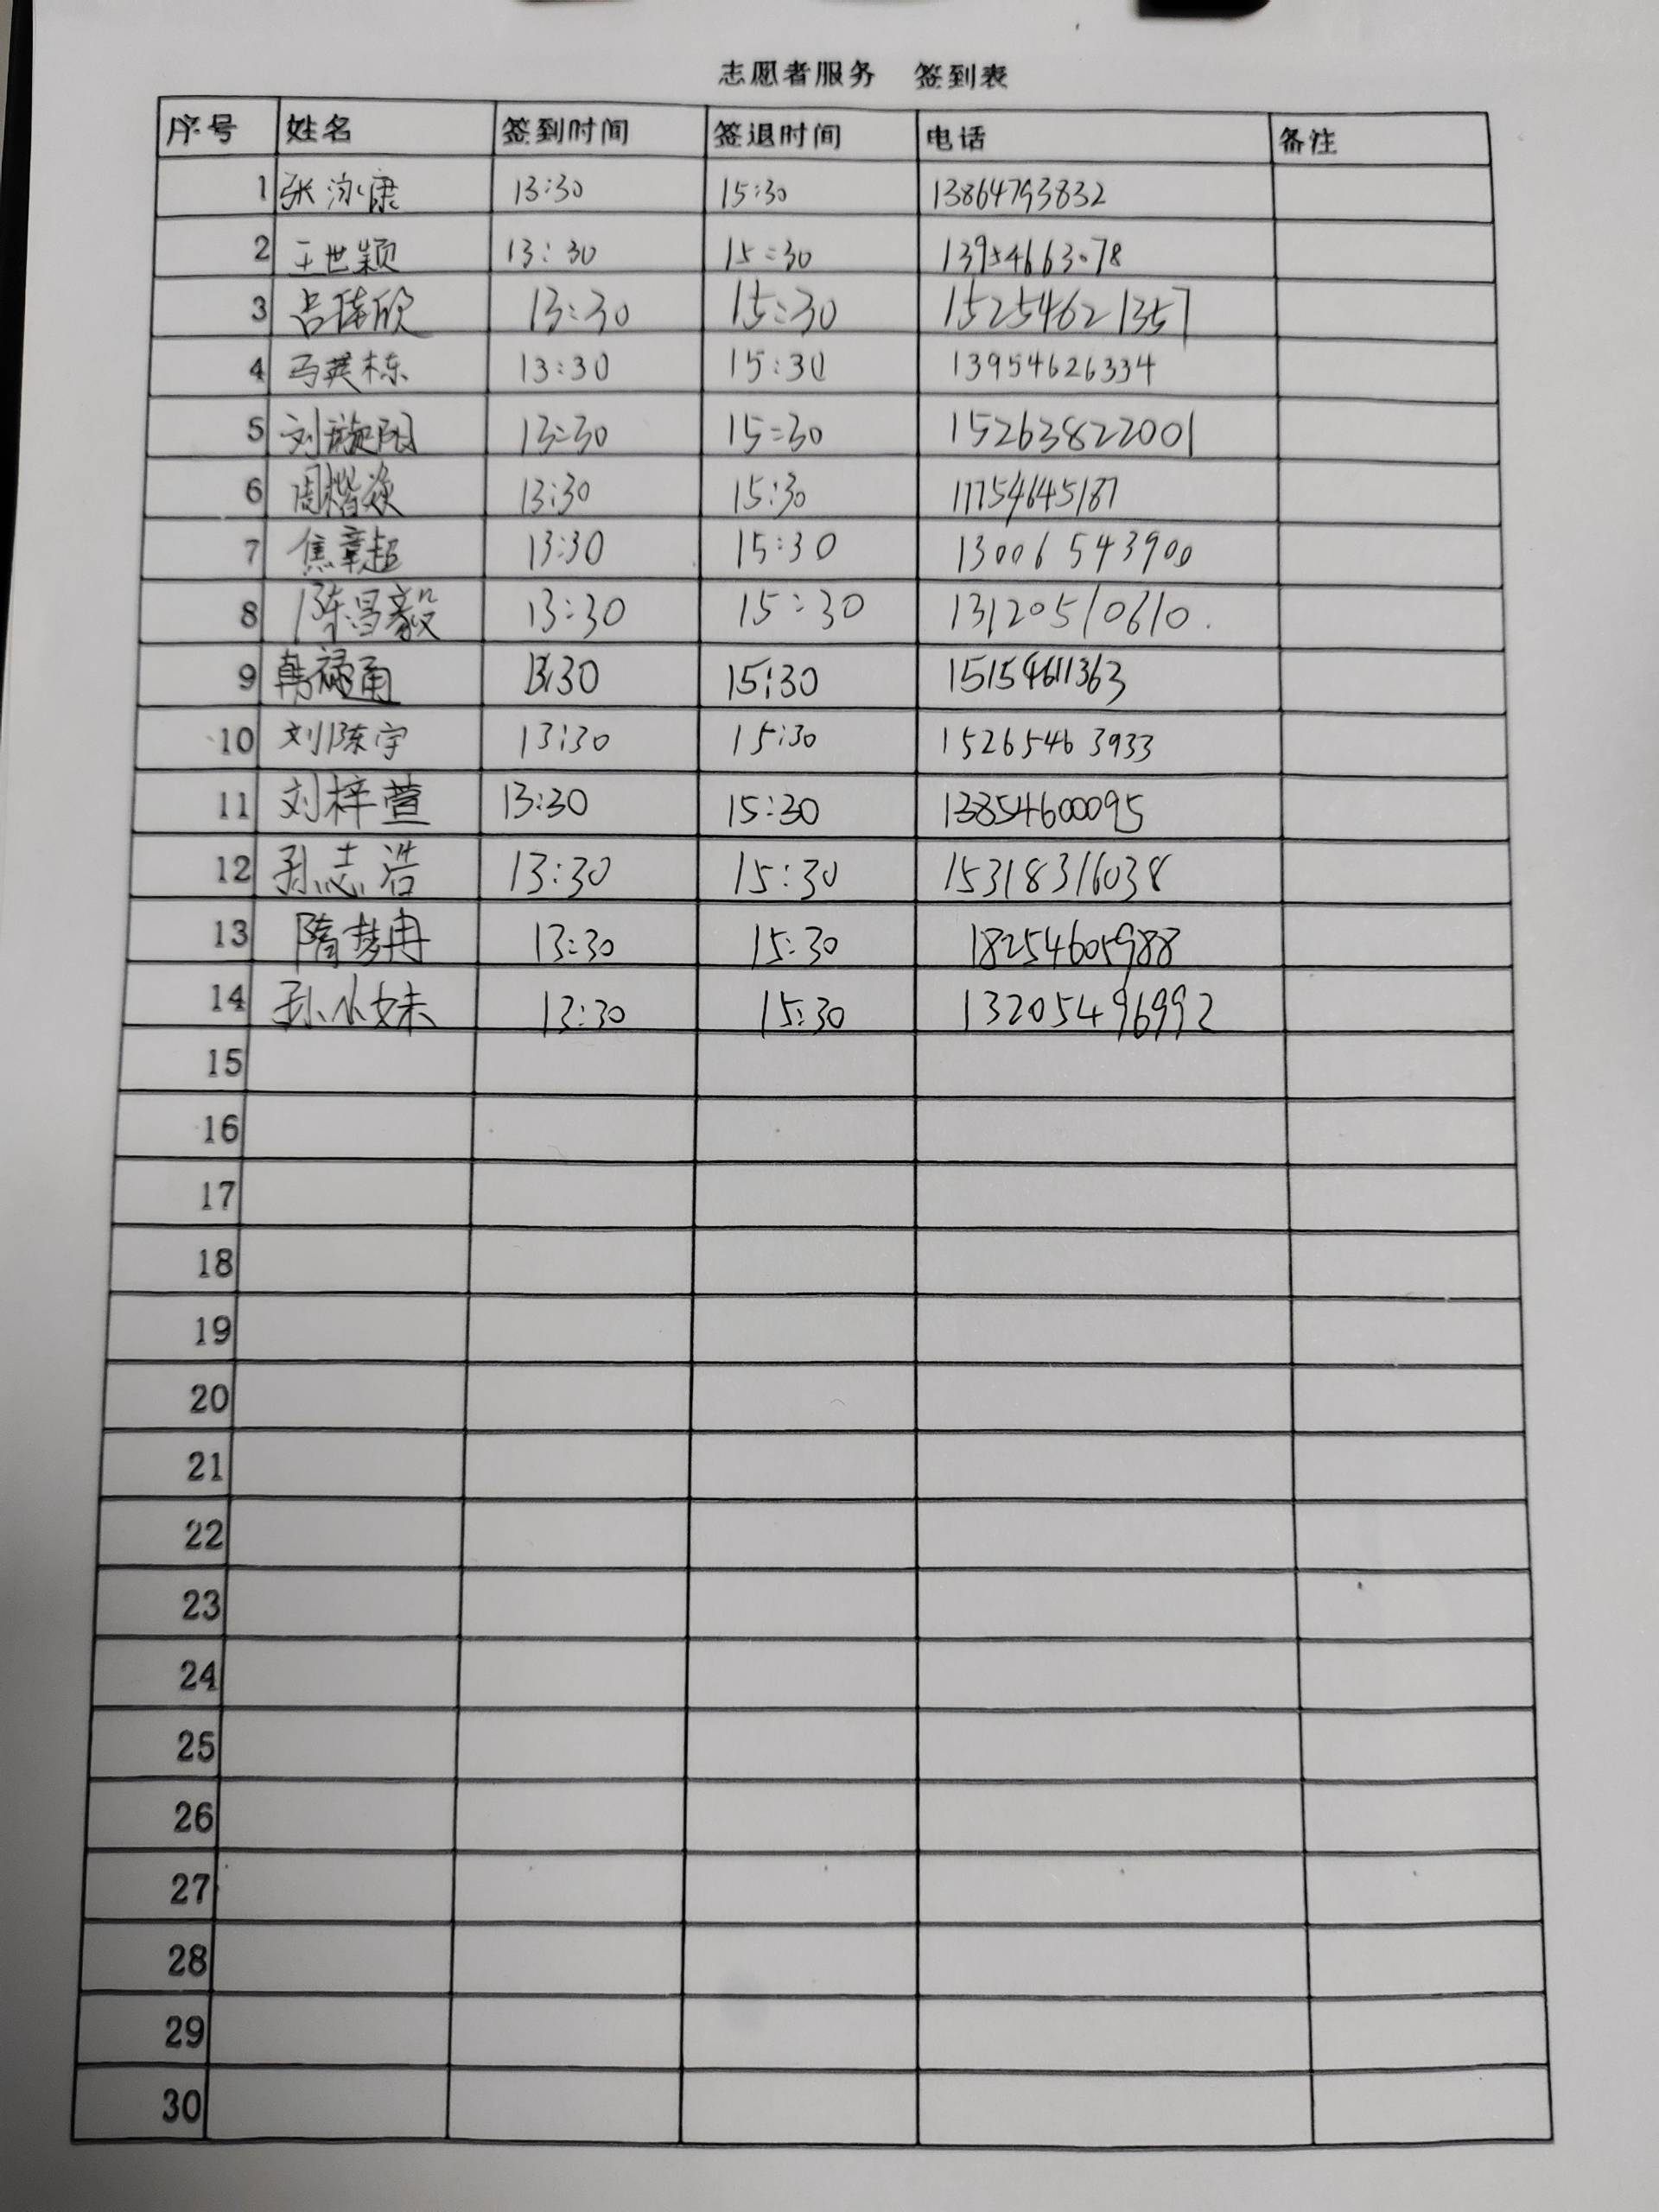 志愿者服务 签到表
序号 姓名 签到时间 签退时间 电话 备注
1 张泳康 13:30 15:30 13864793832
2 王世颖 13:30 15:30 13954663078
3 13:30 15:30 15254621357
4 马英栋 13:30 15:30 13954626334
5 刘璇阳 13:30 15:30 15263822001
6 周楷焕 13:30 15:30 11754645187
7 焦章超 13:30 15:30 13006543900
8 陈昌毅 13:30 15:30 13120510610.
9 韩禄通 13:30 15:30 15154611363
10 刘陈宇 13:30 15:30 15265463933
11 刘梓萱 13:30 15:30 13854600095
12 孙志浩 13:30 15:30 15318316038
13 隋梦冉 13:30 15:30 18254605988
14 孙小妹 13:30 15:30 13205496992
15
16
17
18
19
20
21
22
23
24
25
26
27
28
29
30